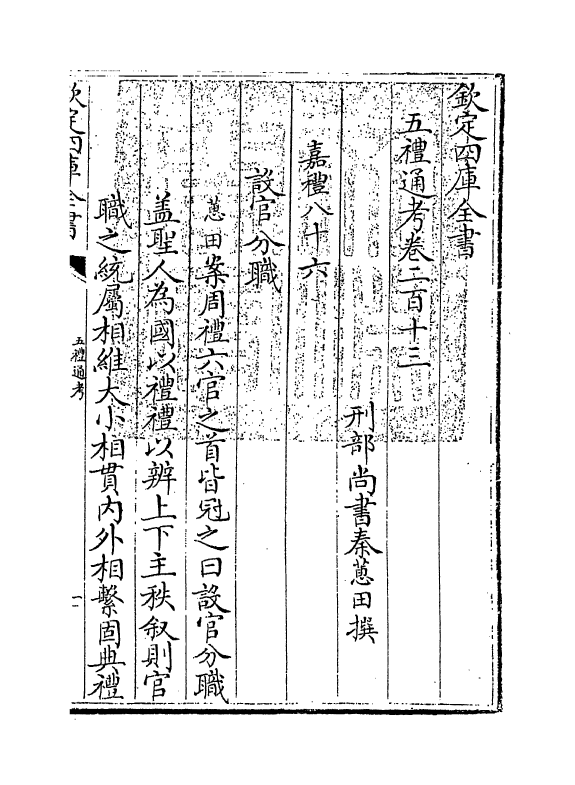 欽定四庫全書
五禮通考卷二百十三
刑部尚書秦蕙田撰
嘉禮八十六
設官分職
蕙田案周禮六官之首皆冠之曰設官分職
蓋聖人為國以禮禮以辨上下主秩叙則官
職之統屬相維大小相貫内外相繫固典禮
欽定四庫全書
五禮通考
一